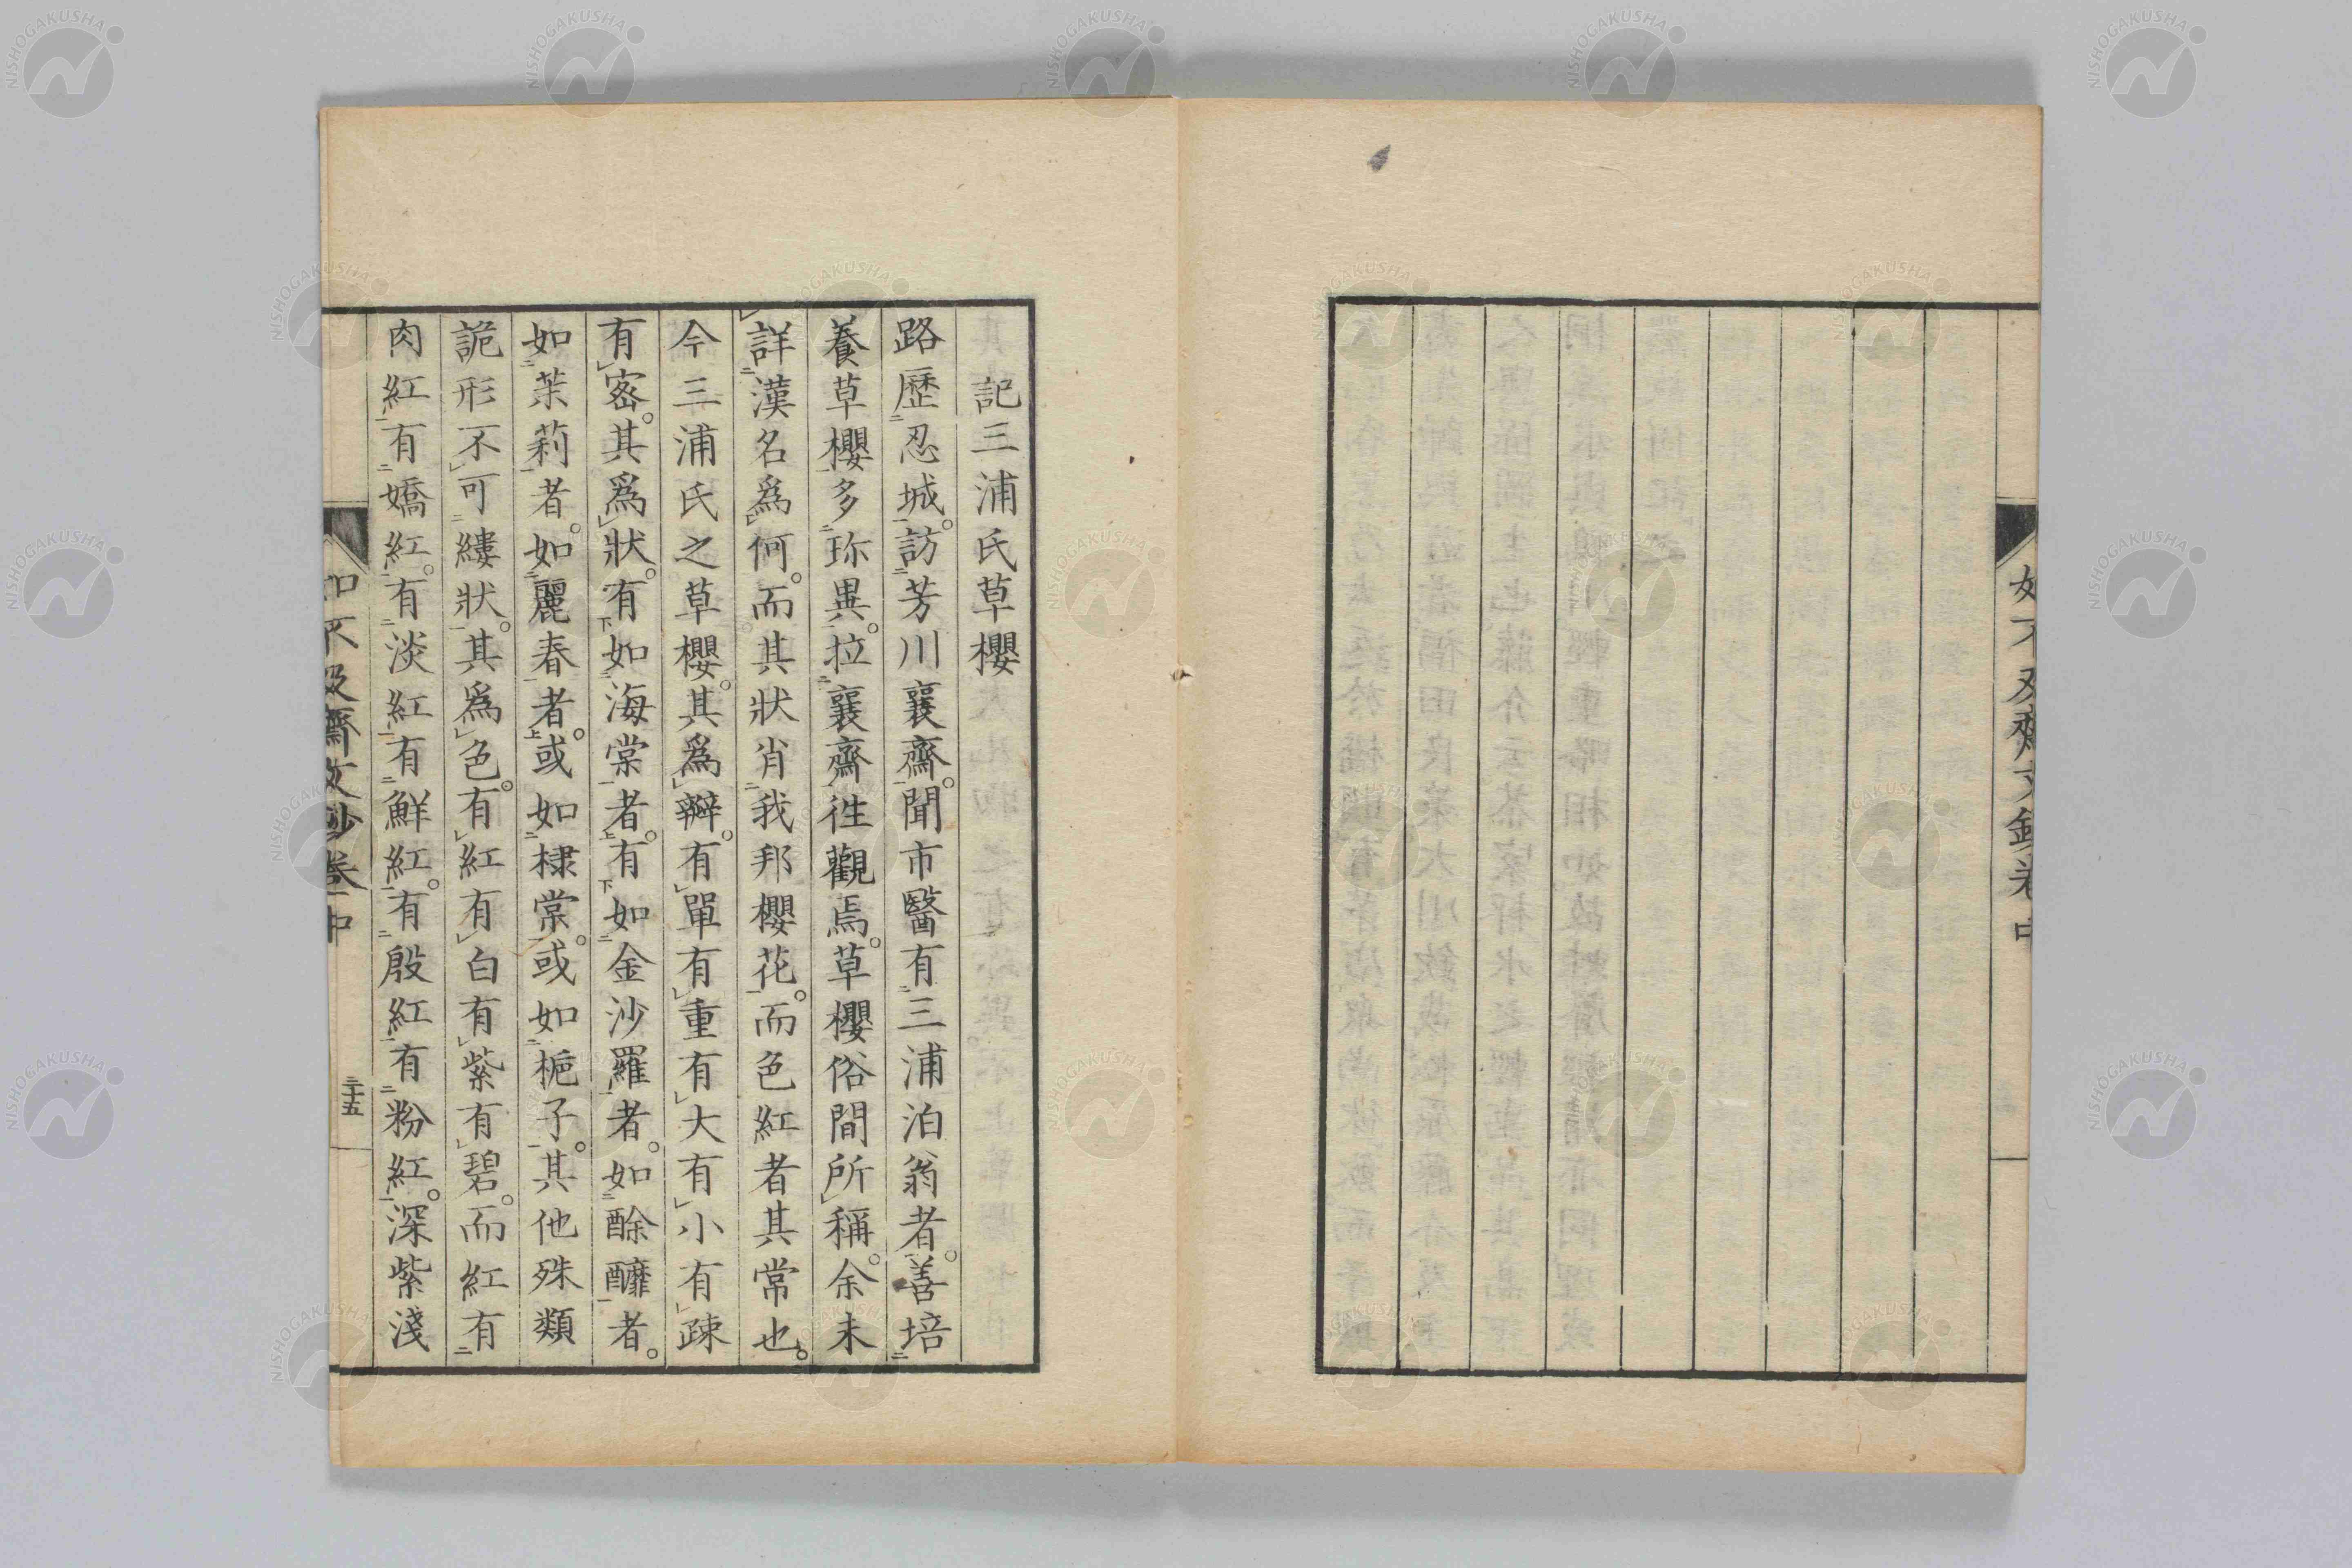 如不及齋文鈔卷中
記三浦氏草櫻
路歷忍城。訪芳川襄齋。聞市醫有三浦泊翁者。善培
養草櫻多珎異。拉襄齋徃觀焉。草櫻俗間所稱。余未
詳漢名爲何。而其狀肖我邦櫻花。而色紅者其常也。
今三浦氏之草櫻。其爲辬。有單有重有大有小有疎
有密。其爲狀。有如海棠者。有如金沙羅者。如酴醿者。
如茉莉者。如麗春者。或如棣棠。或如梔子。其他殊類
詭形不可縷狀。其爲色。有紅有白有紫有碧。而紅有
肉紅有嬌紅。有淡紅有鮮紅。有殷紅有粉紅。深紫淺
如不及齋文鈔卷中
三十五
NISHOGAKUSHA